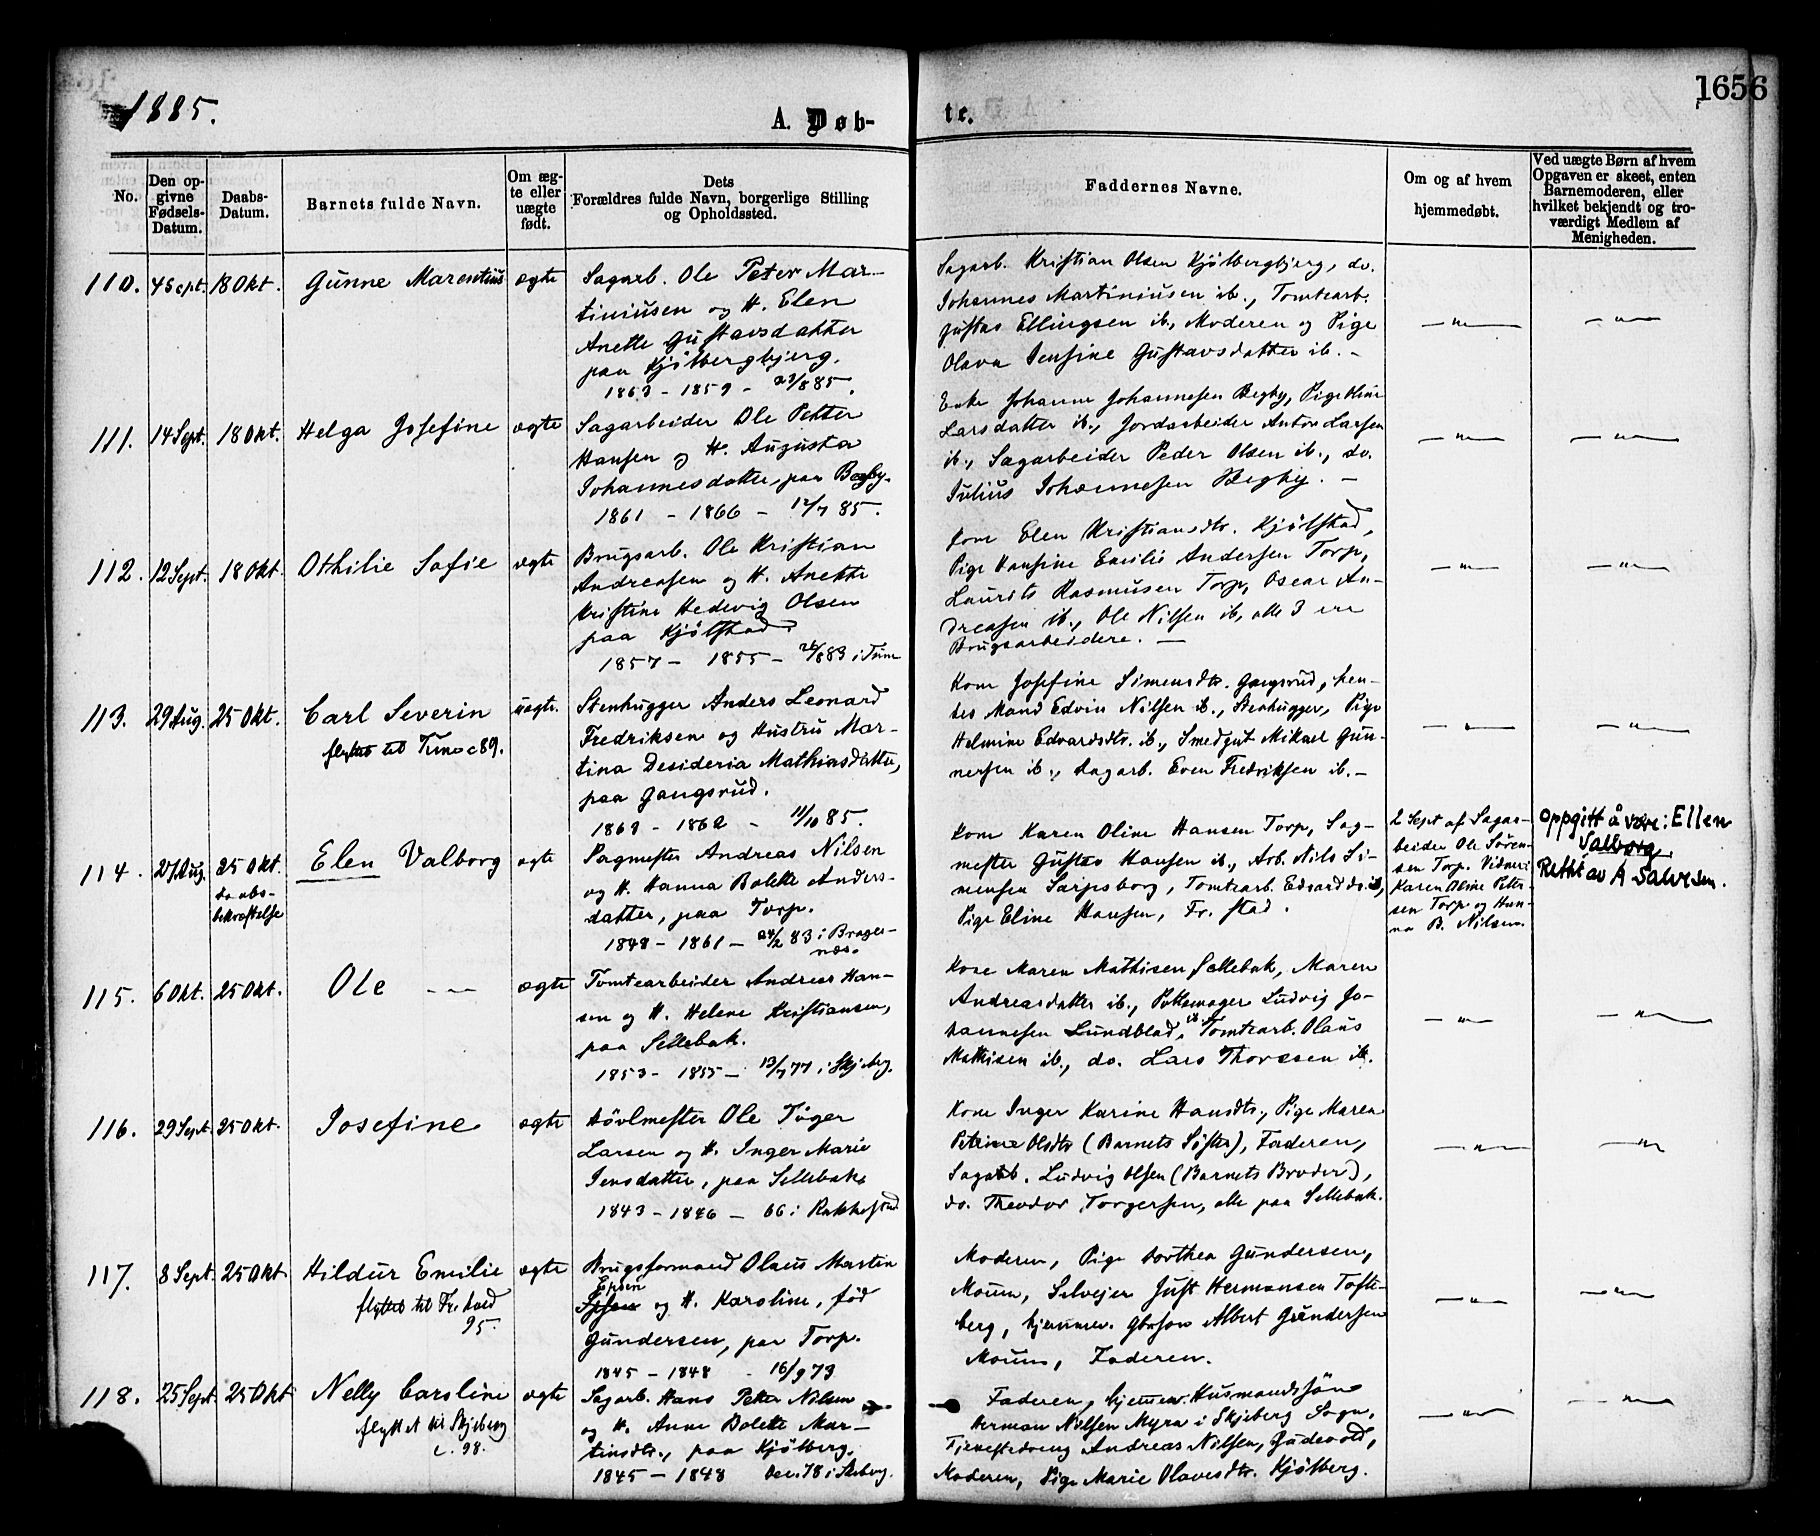 1885.
A. Døb-
te.
1656
No.
Den op-
givne
Fødsels-
Datum.
Daabs-
Datum.
Barnets fulde Navn.
Om æg-
te eller
uægte
født.
Dets
Forældres fulde Navn, borgerlige Stilling
og Opholdssted.
Faddernes Navne.
Om og af hvem
hjemmedøbt.
Ved uægte Børn af hvem
Opgaven er skeet, enten
Barnemoderen, eller
hvilket bekjendt og tro-
værdigt Medlem af
Menigheden.
110. 4 Sept. 18 Okt. Gunne Marentius ægte
Sagarb. Ole Peter Mar-
tiniusen og H. Elen
Anette Gustavsdatter
paa Kjølbergbjerg.
1863 - 1859 - 23/8 85.
Sagarb. Kristian Olsen Kjølbergbjerg, do.
Johannes Martiniusen ib., Tomtearb.
Gustav Ellingsen ib., Moderen og Pige
Olava Jensine Gustavsdatter ib. -
— " — — " —
111. 14 Sept. 18 Okt. Helga Josefine ægte
Sagarbeider Ole Petter
Hansen og H. Augusta
Johannesdatter, paa Begby.
1861 - 1866 - 12/7 85.
Enke Johanne Johannesen Begby, Pige
Larsdatter ib., Jordarbeider Anton Larsen
ib., Sagarbeider Peder Olsen ib., do.
Julius Johannesen Begby. -
— " — — " —
112. 12 Sept. 18 Okt. Othilie Sofie ægte
Brugsarb. Ole Kristian
Andreasen og H. Anette
Kristine Hedevig Olsen
paa Kjølstad.
1857 - 1855 - 26/8 83 i Tune
Kone Elen Kristiansdtr. Kjølstad,
Pige Hansine Emilie Andersen Torp,
Laurits Rasmusen Torp, Oscar An-
dreasen ib., Ole Nilsen ib., alle 3 ere
Brugsarbeidere. —
— " — — " —
113. 29 Aug. 25 Okt. Carl Severin uægte.
flyttet til Tune 89.
Stenhugger Anders Leonard
Fredriksen og Hustru Mar-
tina Desideria Mathiasdatter,
paa Gangsrud.
1863 - 1862 - 11/10 85.
Kone Josefine Simensdtr. Gangsrud, hen-
des Mand Edvin Nilsen ib., Stenhugger, Pige
Helmine Edvardsdtr. ib., Smedgut Mikael Gun-
nersen ib., Sagarb. Even Fredriksen ib. -
— " — — " —
114. 27 Aug. 25 Okt. Elen Valborg ægte
Daabs-
bekræftelse
Pagmester Andreas Nilsen
og H. Hanna Bolette Anders-
datter, paa Torp.
1848 - 1861 - 24/2 83 i Brager-
næs.
Kone Karen Oline Hansen Torp, Sag-
mester Gustav Hansen ib., Arb. Nils Si-
mensen Sarpsborg, Tomtearb. Edvard do. ib,
Pige Eline Hansen, Fr. stad.
2 Sept af Sagar-
beider Ole Søren-
sen Torp. Vidner:
Karen Oline Peter-
sen Torp og Han-
na B. Nilsen.
Oppgitt å være: Ellen
Valborg
Rettet av A Salvesen.
115. 6 Okt. 25 Okt. Ole — ægte
Tomtearbeider Andreas Han-
sen og H. Helene Kristiansen,
paa Sellebak.
1853 - 1855 - 13/7 77 i Skjeberg.
Kone Maren Mathisen Sellebak, Maren
Andreasdatter ib., Pottemager Ludvig Jo-
hannesen Lundblad, ib. Tomtearb. Olaus
Mathisen ib., do. Lars Thoresen ib.
— " — — " —
116. 29 Sept. 25 Okt. Josefine ægte
Høvlmester Ole Tøger
Larsen og H. Inger Marie
Jensdatter, paa Sellebak.
1843 - 1846 - 66 i Rakkestad
Kone Inger Karine Hansdtr., Pige Maren
Petrine Olsdtr (Barnets Søster), Faderen,
Sagarb. Ludvig Olsen (Barnets Broder),
do. Theodor Torgersen, alle paa Sellebak.
— " — — " —
117. 8 Sept. 25 Okt. Hildur Emilie ægte
flyttet til Fr.stad
95.
Brugsformand Olaus Martin
Epsen
og H. Karoline, fød
Gundersen, paa Torp.
1845 - 1848 - 16/9 73
Moderen, Pige Dorthea Gundersen,
Moum, Selvejer Just Hermansen Tofte-
berg, hjemmev. Gbrsøn Albert Gundersen
Moum, Faderen.
— " — — " —
118. 25 Sept. 25 Okt Nelly Caroline ægte
flyttet til Skjeberg
c. 98.
Sagarb. Hans Petter Nilsen
og H. Anne Bolette Mar-
tinsdtr., paa Kjølberg.
1845 - 1848 Dec. 78 i Skjeberg.
Faderen, hjemmev. Husmandssøn
Herman Nilsen Myra i Skjeberg Sogn,
Tjenestedreng Andreas Nilsen, Gudevold,
Moderen, Pige Marie Olavesdtr. Kjølberg.
— " — — " —